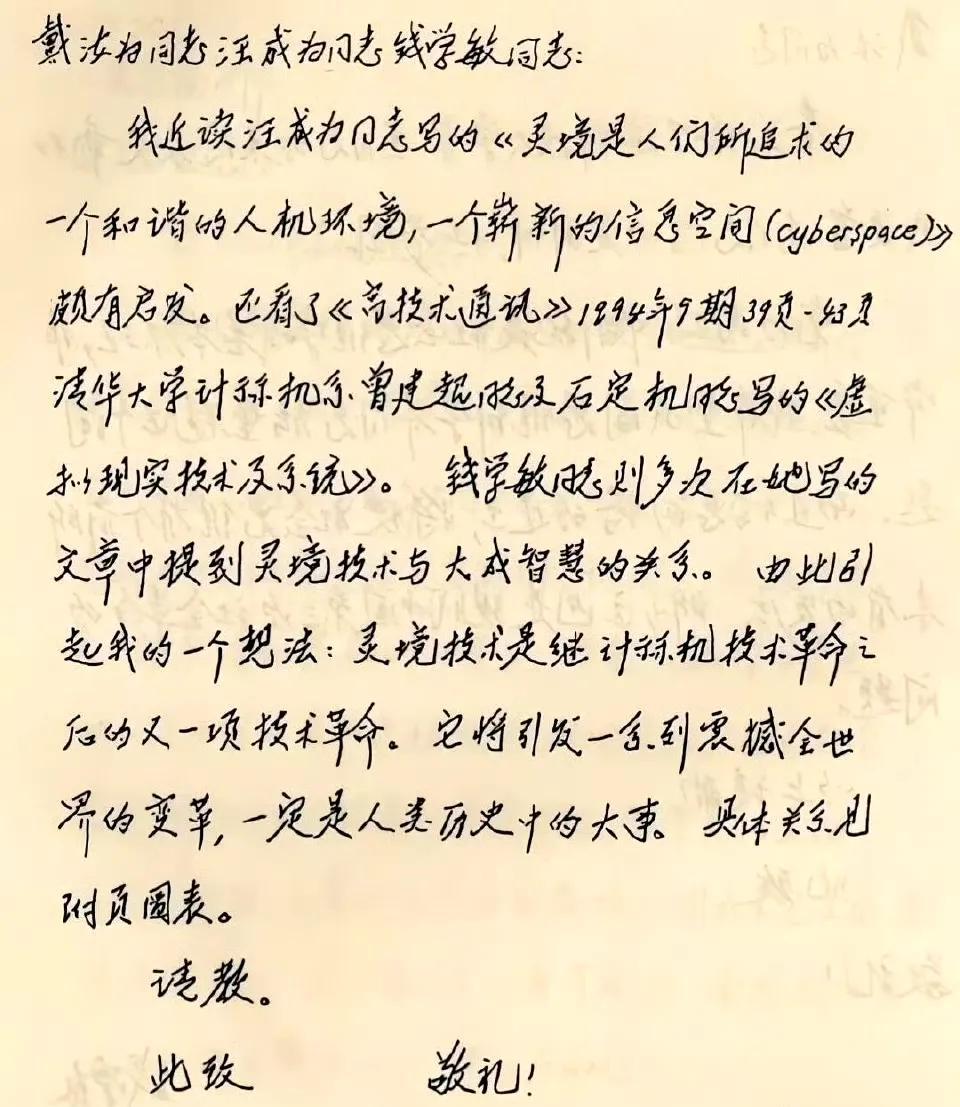 戴汝为同志汪成为同志钱学敏同志:
我近读汪成为同志写的《灵境是人们所追求的
一个和谐的人机环境,一个崭新的信息空间(cyberspace)》
颇有启发。还看了《高技术通讯》1994年9期39页-43页
清华大学计算机系曾建超同志及石定机同志写的《虚
拟现实技术及系统》。 钱学敏同志则多次在她写的
文章中提到灵境技术与大成智慧的关系。 由此引
起我的一个想法:灵境技术是继计算机技术革命之
后的又一项技术革命。它将引发一系列震撼全世
界的变革,一定是人类历史中的大事。 具体关系见
附页圖表。
请教。
此致 敬礼!